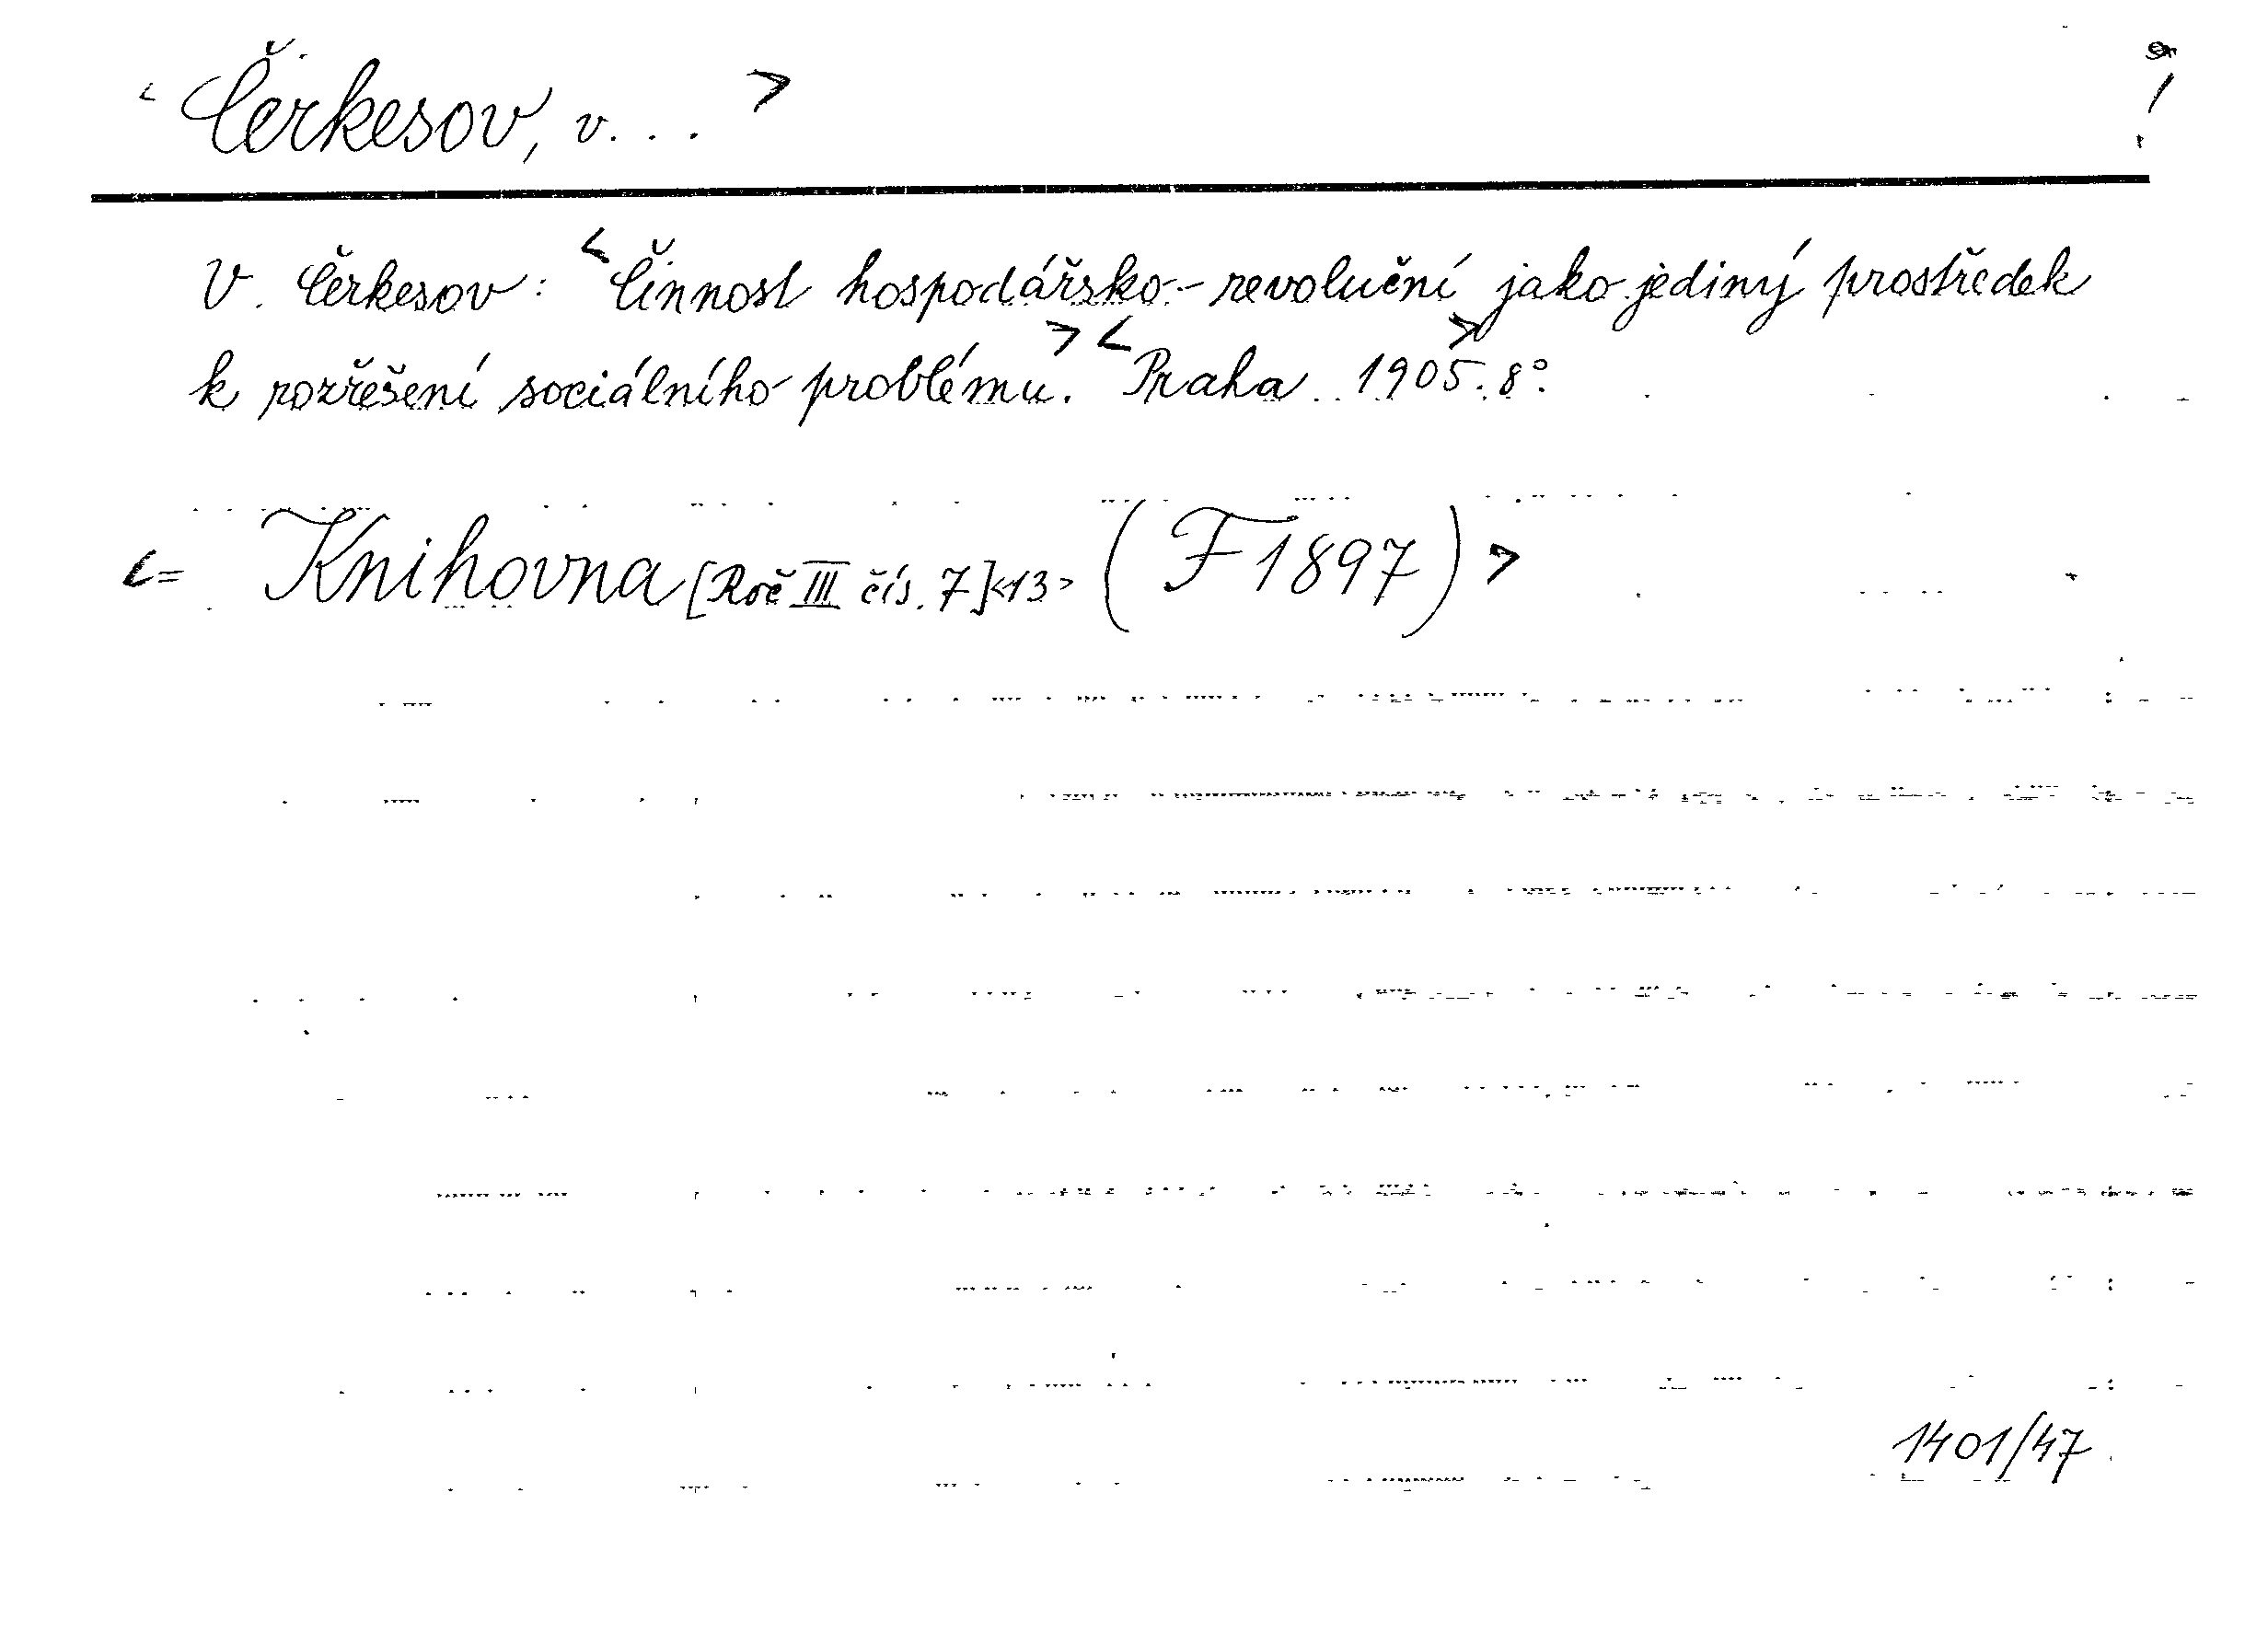 < Čerkesov, v... >
V. Čerkesov: <Činnost hospodářsko-revoluční jako jediný prostředek
k rozřešení sociálního problému.> <Praha 1905.> 8°.
<= Knihovna [Roč III čís. 7] <13> (F 1897) >
1401/47